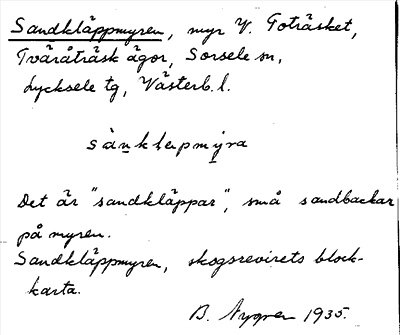 Sandkläppmyren, myr V. Toträsket,
Tväråträsk ägor, Sorsele sn,
Lycksele tg, Västerb. l.
sànklapmýra
Det är "sandkläppar", små sandbackar
på myren.
Sandkläppmyren, skogsrevirets block-
karta.
B. Nygren 1935.